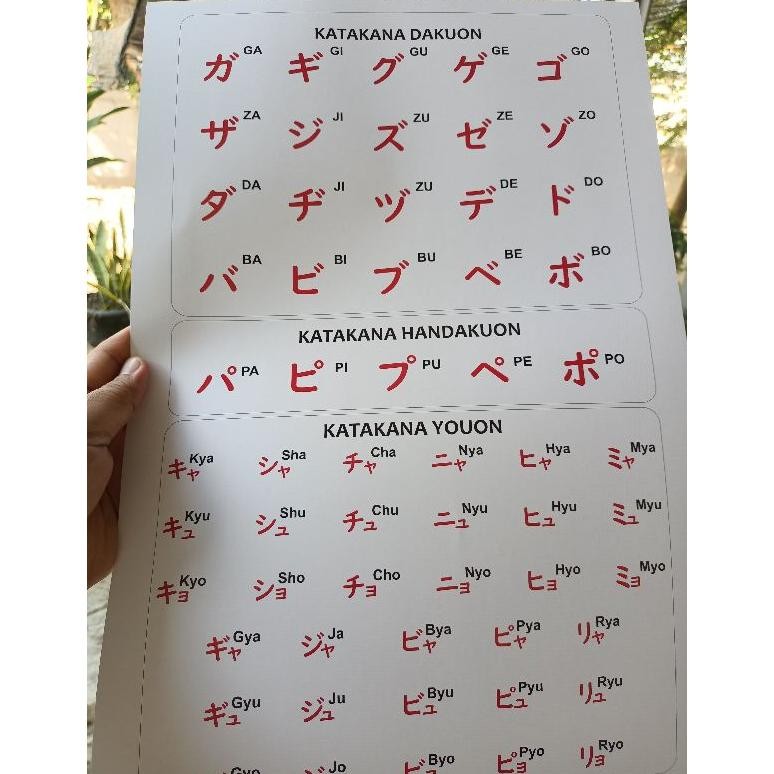 KATAKANA DAKUON
ガ GA ギ GI グ GU ゲ GE ゴ GO
ザ ZA ジ JI ズ ZU ゼ ZE ゾ ZO
ダ DA ヂ JI ヅ ZU デ DE ド DO
バ BA ビ BI ブ BU ベ BE ボ BO
KATAKANA HANDAKUON
パ PA ピ PI プ PU ペ PE ポ PO
KATAKANA YOUON
キャ Kya シャ Sha チャ Cha ニャ Nya ヒャ Hya ミャ Mya
キュ Kyu シュ Shu チュ Chu ニュ Nyu ヒュ Hyu ミュ Myu
キョ Kyo ショ Sho チョ Cho ニョ Nyo ヒョ Hyo ミョ Myo
ギャ Gya ジャ Ja ビャ Bya ピャ Pya リャ Rya
ギュ Gyu ジュ Ju ビュ Byu ピュ Pyu リュ Ryu
Gyo Jo Byo ピョ Pyo リョ Ryo